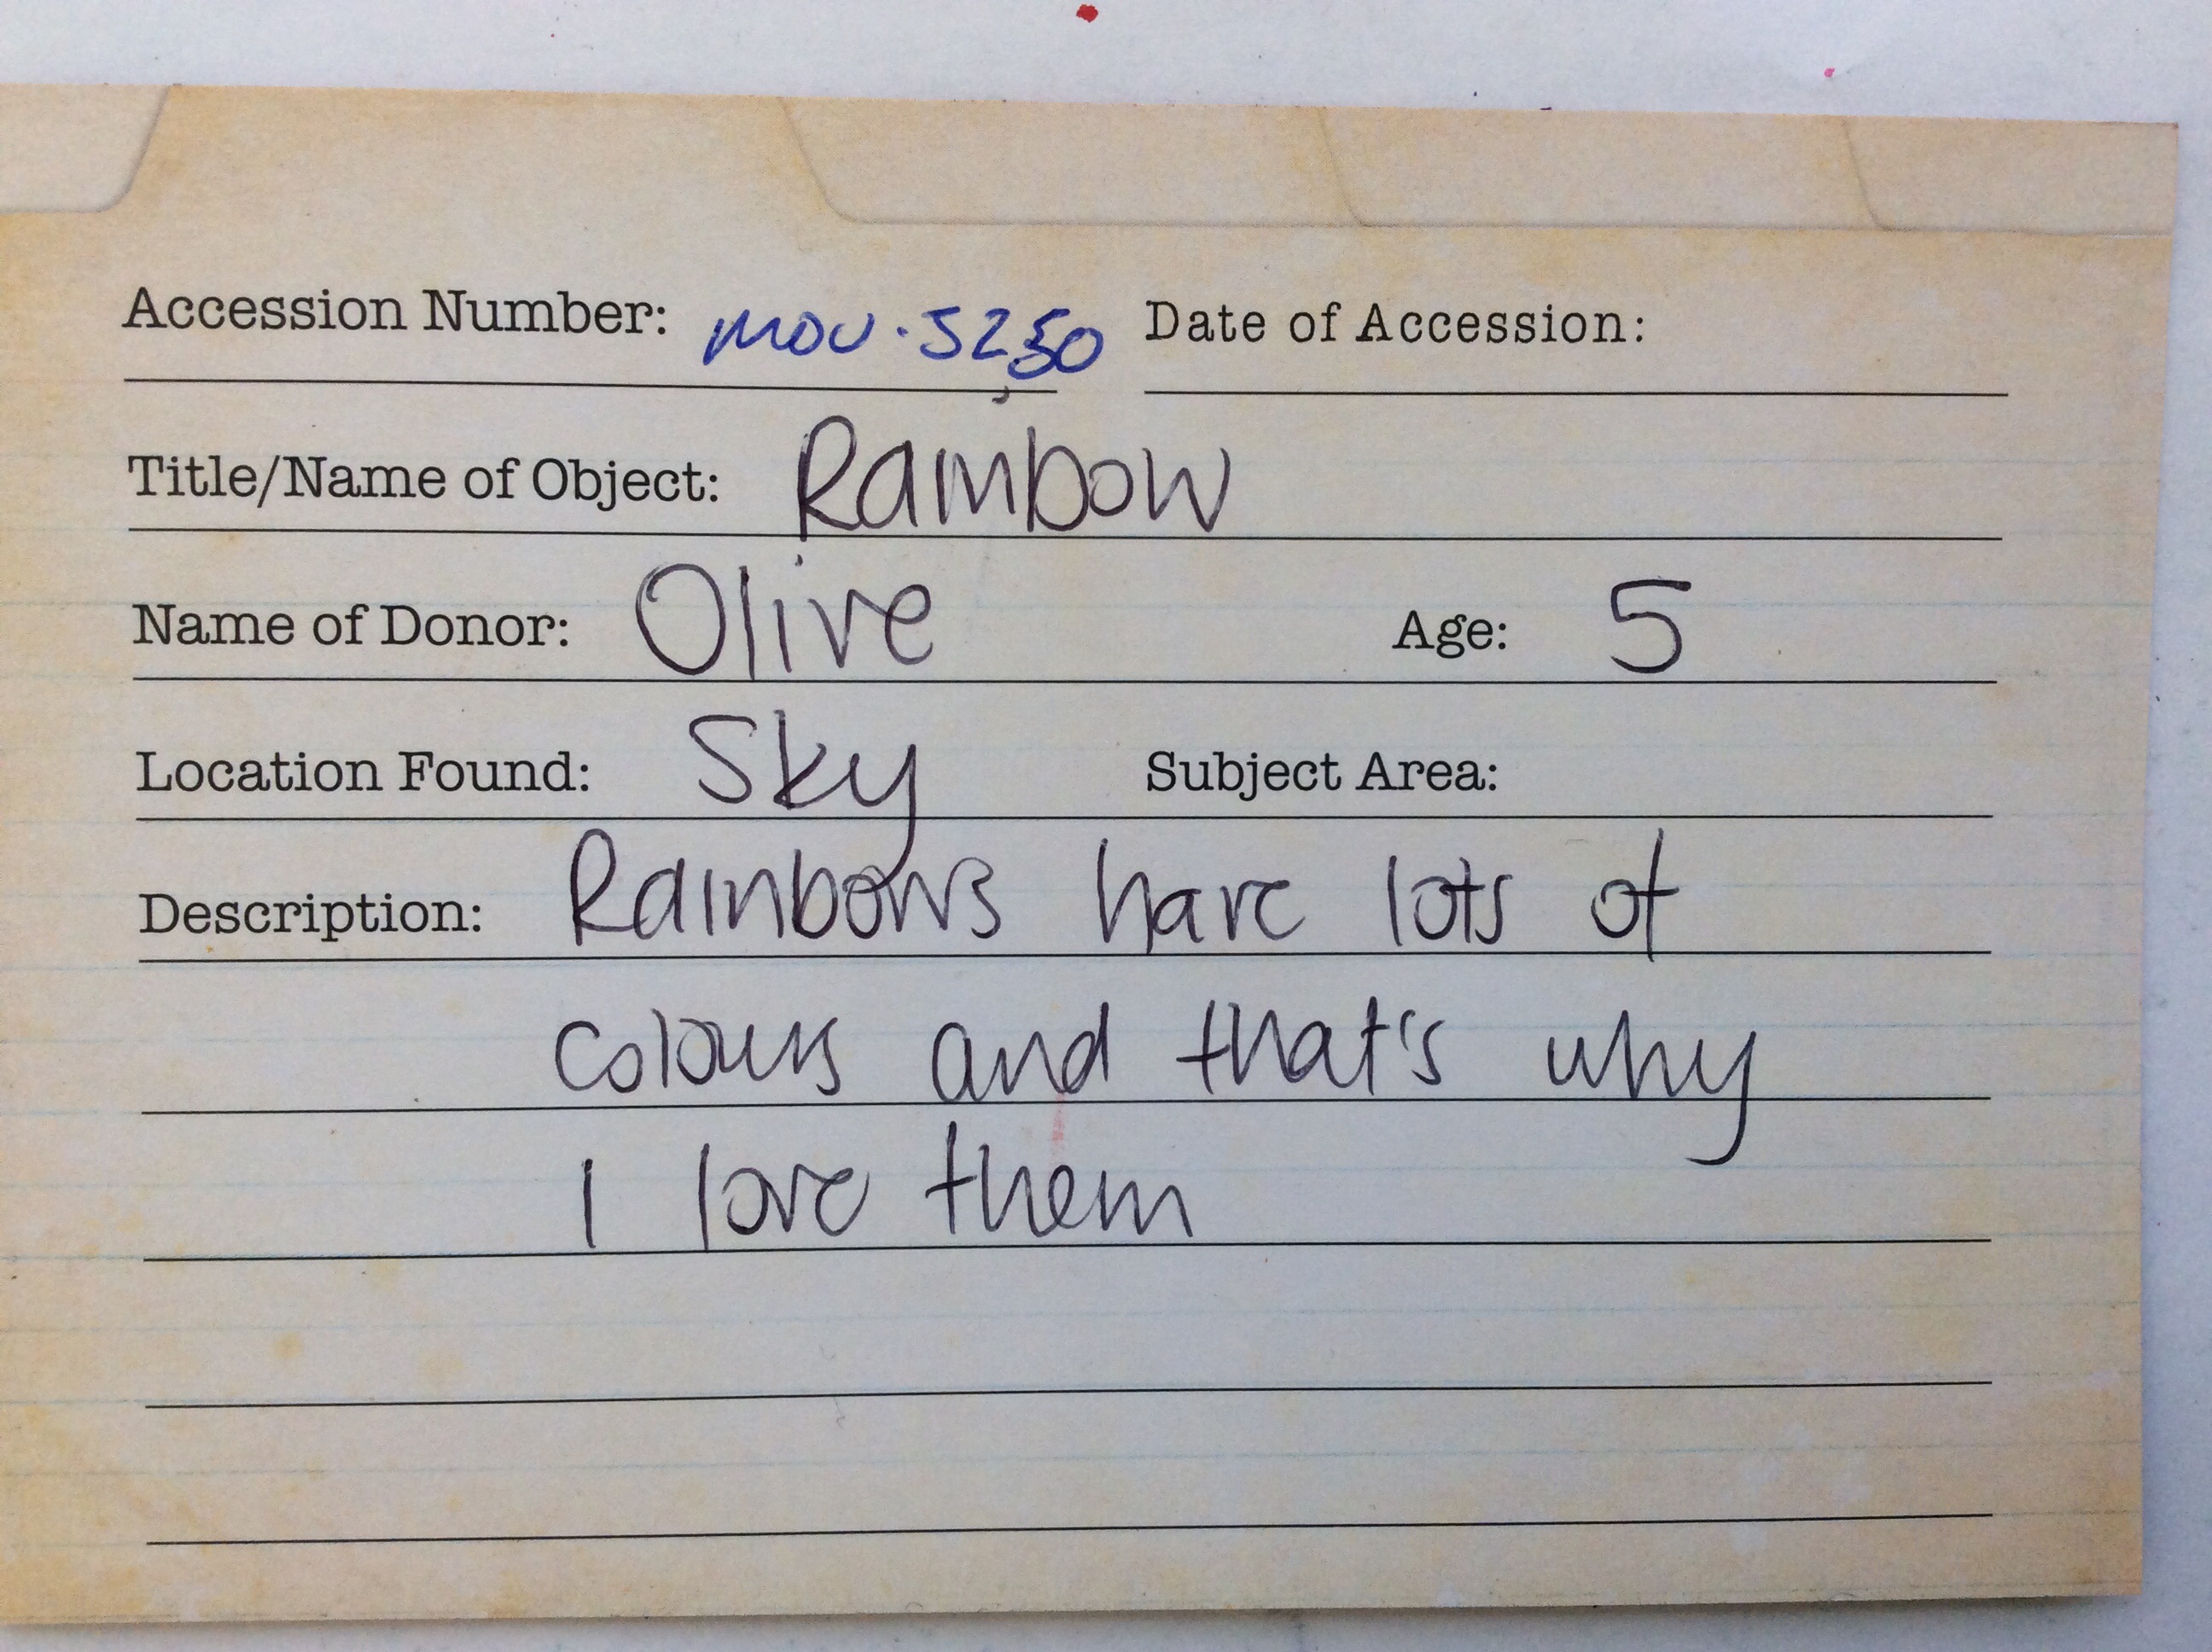 Accession Number: MOU.5250 Date of Accession:
Title/Name of Object: Rainbow
Name of Donor: Olive Age: 5
Location Found: Sky Subject Area:
Description: Rainbows have lots of
colours and that's why
I love them